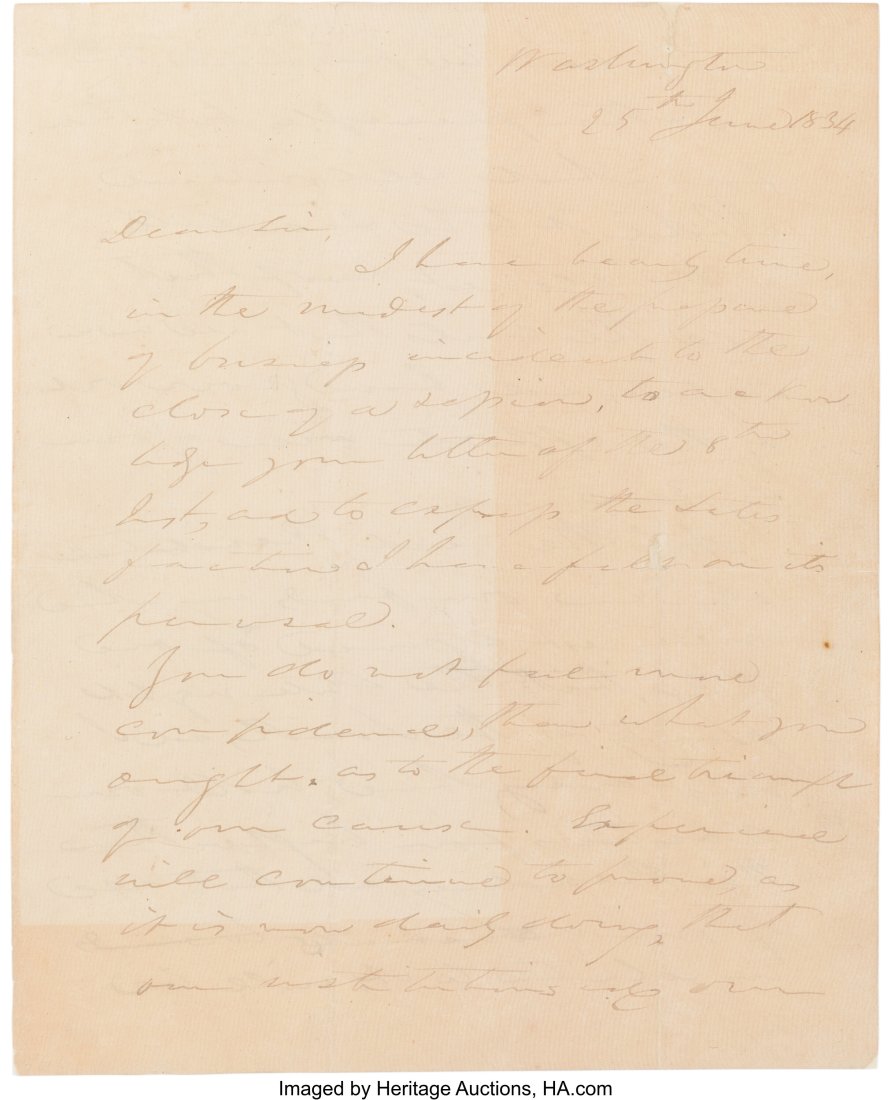 Washington
25th June 1834
Dear Sir,
I have bearly time,
in the midst of the
of business incident to the
close of a session, to acknow
ledge your letter of the 8th
Inst, and to express the satis
faction I have felt on its
perusal.
You do not feel more
confidence, than what you
ought, as to the final triumph
of our cause. Experience
will continue to prove, as
it is now daily doing, that
our institutions our
Imaged by Heritage Auctions, HA.com